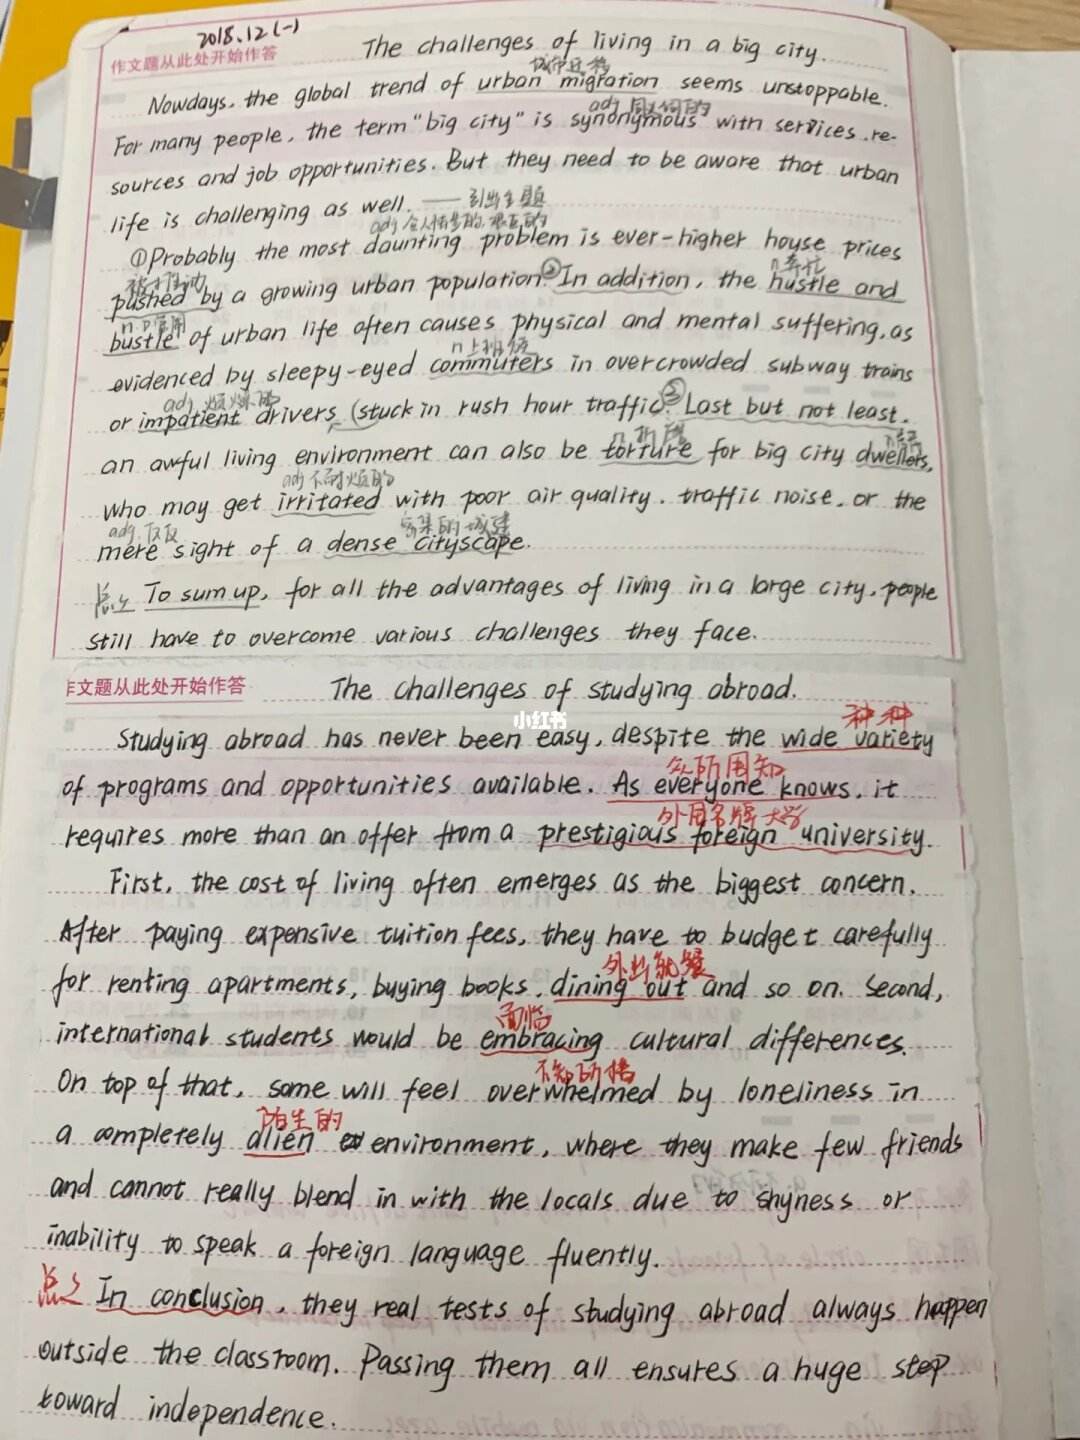 2018.12(一)
作文题从此处开始作答
The challenges of living in a big city.
城市迁移
Nowdays, the global trend of urban migration seems unstoppable.
adj 同义词的
For many people, the term "big city" is synonymous with services, re-
sources and job opportunities. But they need to be aware that urban
life is challenging as well. —— 引出主题
adj
①Probably the most daunting problem is ever-higher house prices
被推动
n 奔忙
pushed by a growing urban population. ②In addition, the hustle and
n.
bustle of urban life often causes physical and mental suffering, as
n 上班族
evidenced by sleepy-eyed commuters in overcrowded subway trains
adj 烦燥的
or impatient drivers (stuck in rush hour traffic. ③Last but not least,
n 折磨
an awful living environment can also be torture for big city dwellers,
adj 不耐烦的
who may get irritated with poor air quality, traffic noise, or the
adj 仅仅
密集的城建
mere sight of a dense cityscape.
总之 To sum up, for all the advantages of living in a large city, people
still have to overcome various challenges they face.
作文题从此处开始作答
The challenges of studying abroad.
小红书
种种
Studying abroad has never been easy, despite the wide variety
众所周知
of programs and opportunities available. As everyone knows, it
外国名牌大学
requires more than an offer from a prestigious foreign university.
First, the cost of living often emerges as the biggest concern.
After paying expensive tuition fees, they have to budget carefully
外出就餐
for renting apartments, buying books, dining out and so on. Second,
面临
international students would be embracing cultural differences.
不知所措
On top of that, some will feel overwhelmed by loneliness in
陌生的
a completely alien environment, where they make few friends
and cannot really blend in with the locals due to shyness or
inability to speak a foreign language fluently.
总之 In conclusion, they real tests of studying abroad always happen
outside the classroom. Passing them all ensures a huge step
toward independence.